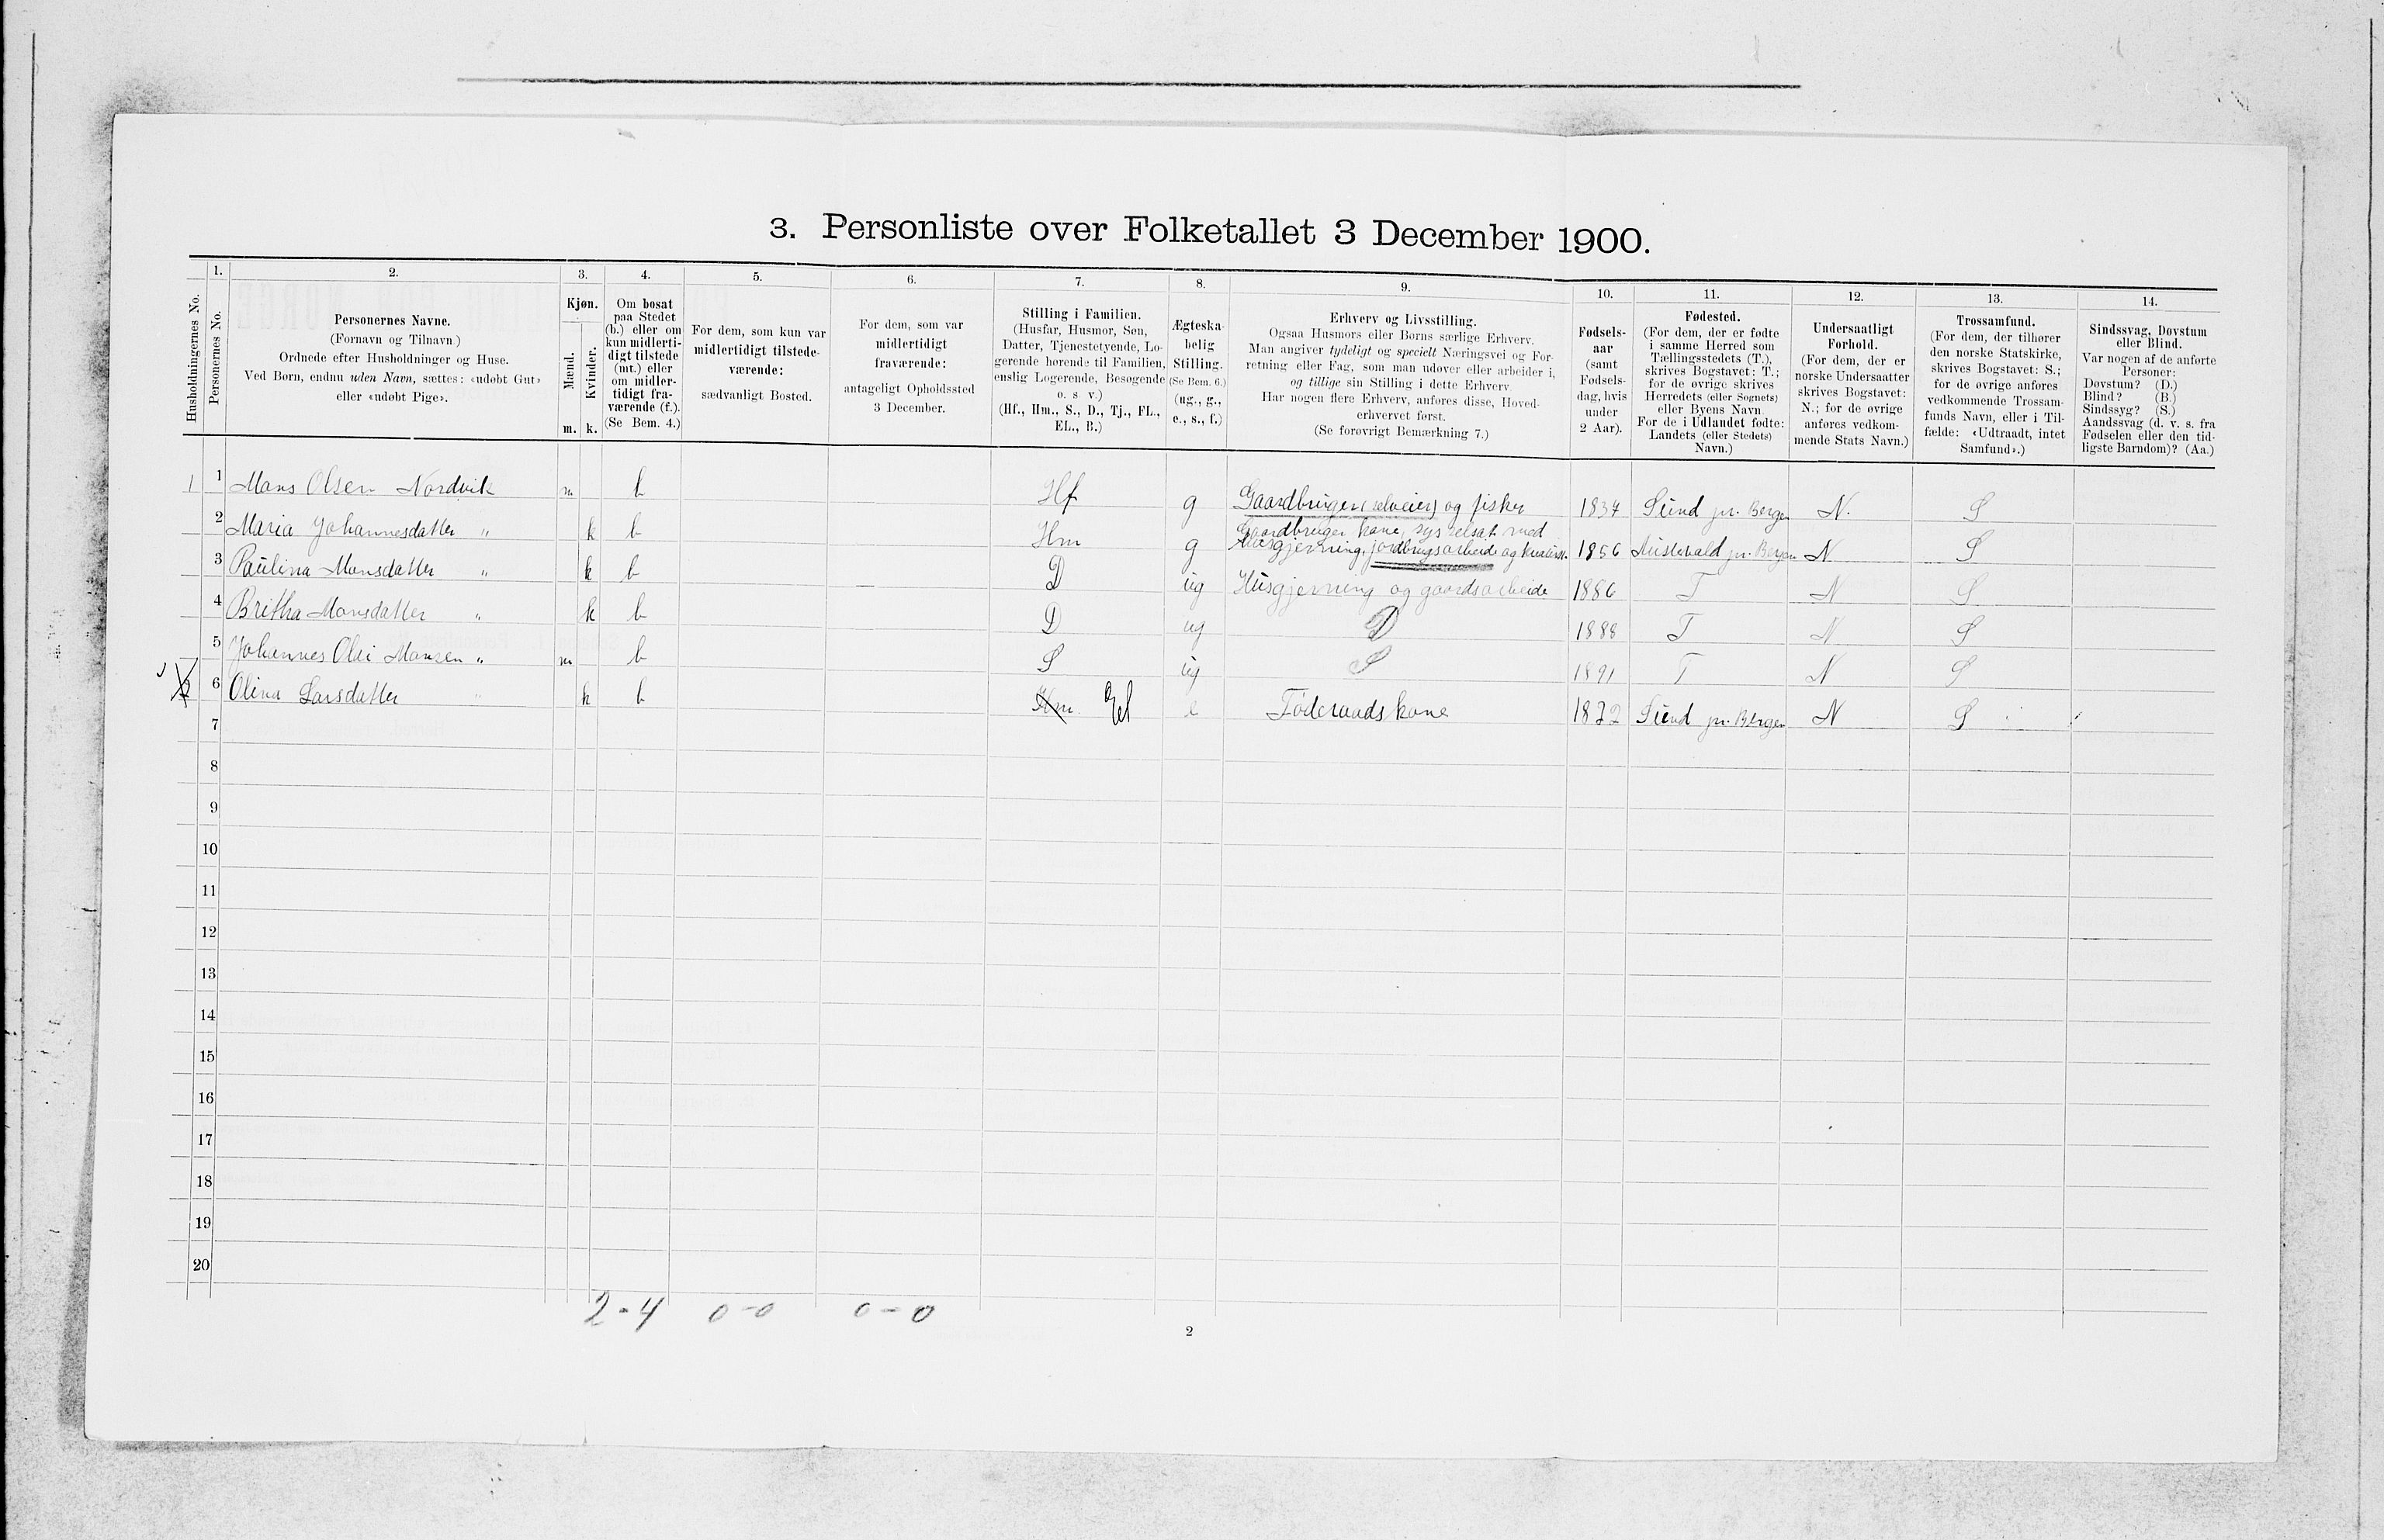 3. Personliste over Folketallet 3 December 1900.
Husholdningernes No.
1.
Personernes No.
2.
Personernes Navne.
(Fornavn og Tilnavn)
Ordnede efter Husholdninger og Huse.
Ved Børn, endnu uden Navn, sættes: «udøbt Gut»
eller «udøbt Pige».
3.
Kjøn.
Mænd.
Kvinder.
m. k.
4.
Om bosat
paa Stedet
(b.) eller om
kun midlerti-
digt tilstede
(mt.) eller
om midler-
tidigt fra-
værende (f.).
(Se Bem. 4.)
5.
For dem, som kun var
midlertidigt tilstede-
værende:
sædvanligt Bosted.
6.
For dem, som var
midlertidigt
fraværende:
antageligt Opholdssted
3 December.
7.
Stilling i Familien.
(Husfar, Husmor, Søn,
Datter, Tjenestetyende, Lo-
gerende hørende til Familien,
enslig Logerende, Besøgende
o. s. v.)
(Hf., Hm., S., D., Tj., FL.,
EL., B.)
8.
Ægteska-
belig
Stilling.
(Se Bem. 6.)
(ug., g.,
e., s., f.)
9.
Erhverv og Livsstilling.
Ogsaa Husmors eller Børns særlige Erhverv.
Man angiver tydeligt og specielt Næringsvei og For-
retning eller Fag, som man udøver eller arbeider i,
og tillige sin Stilling i dette Erhverv.
Har nogen flere Erhverv, anføres disse, Hoved-
erhvervet først.
(Se forøvrigt Bemærkning 7.)
10.
Fødsels-
aar
(samt
Fødsels-
dag, hvis
under
2 Aar).
11.
Fødested.
(For dem, der er fødte
i samme Herred som
Tællingsstedets (T.),
skrives Bogstavet: T.;
for de øvrige skrives
Herredets (eller Sognets)
eller Byens Navn.
For de i Udlandet fødte:
Landets (eller Stedets)
Navn.)
12.
Undersaatligt
Forhold.
(For dem, der er
norske Undersaatter
skrives Bogstavet:
N.; for de øvrige
anføres vedkom-
mende Stats Navn.)
13.
Trossamfund.
(For dem, der tilhører
den norske Statskirke,
skrives Bogstavet: S.;
for de øvrige anføres
vedkommende Trossam-
funds Navn, eller i Til-
fælde: «Udtraadt, intet
Samfund».)
14.
Sindssvag, Døvstum
eller Blind.
Var nogen af de anførte
Personer:
Døvstum? (D.)
Blind? (B.)
Sindssyg? (S.)
Aandssvag (d. v. s. fra
Fødselen eller den tid-
ligste Barndom)? (Aa.)
1 1 Mons Olsen Nordvik m b Hf g Gaardbruger (selveier) og fisker 1834 Sund pr. Bergen N. S
2 Maria Johannesdatter " k b Hm g Gaardbruger kone, sysselsat med
Husgjerning, jordbrugsarbeide og 1856 Austevold pr. Bergen N S
3 Paulina Monsdatter " k b D ug Husgjerning og gaardsarbeide 1886 T N S
4 Britha Monsdatter " k b D ug D 1888 T N S
5 Johannes Olai Monsen " m b S ug S 1891 T N S
2 6 Olina Larsdatter " k b Hm El e Føderaadskone 1832 Sund pr. Bergen N S
7
8
9
10
11
12
13
14
15
16
17
18
19
20
2-4 0-0 0-0
2